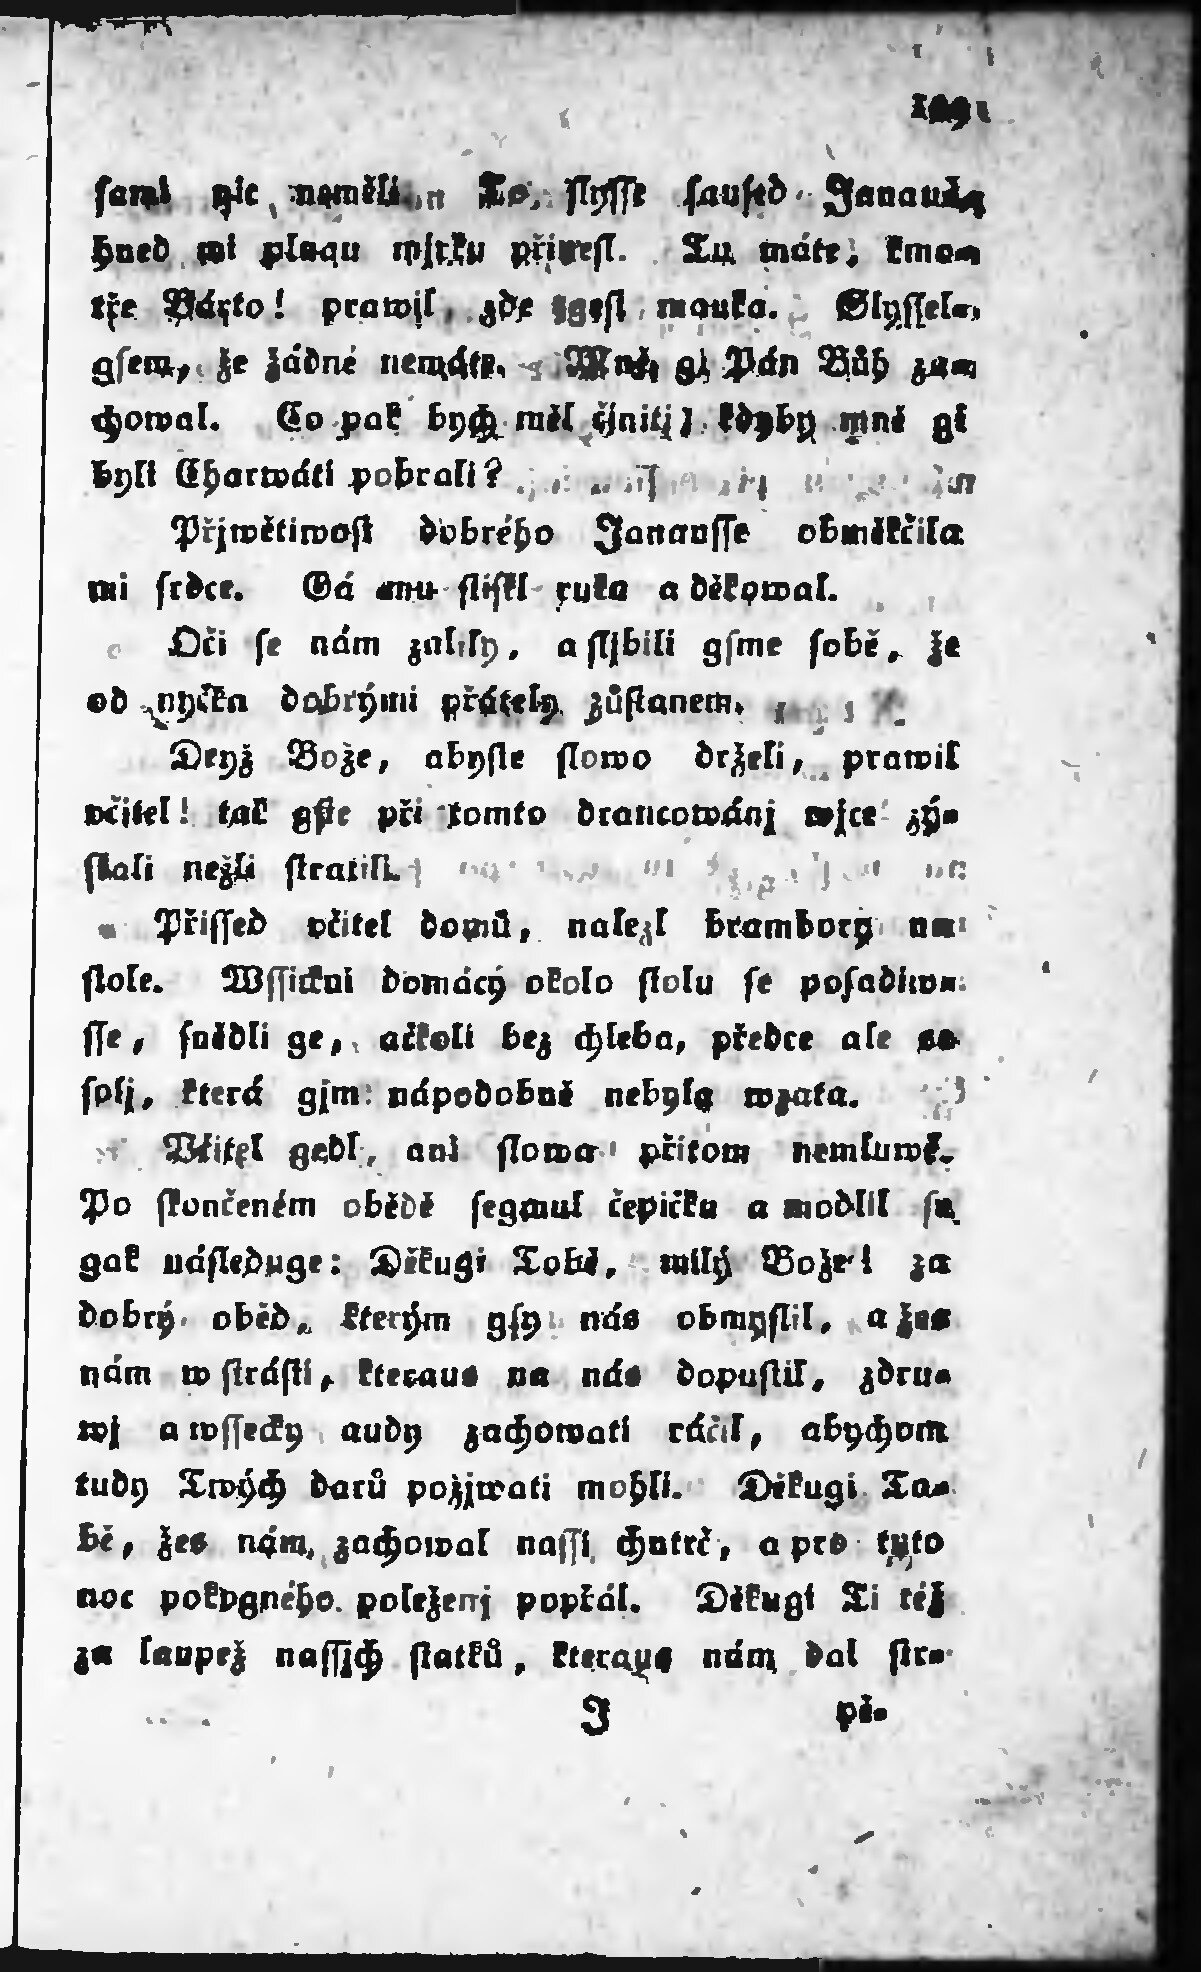 sami nic neměli. To slysse saused Janausse
hned mi plnau mjrku přinesl. Tu máte, kmo-
tře Bárto! prawil, zde gest mauka. Slyssel
gsem, že žádné nemáte. Mně gi Pán Bůh za-
chowal. Co pak bych měl činiti, kdyby mně gi
byli Charwáti pobrali?
Přjwětiwost dobrého Janausse obměkčila
mi srdce. Gá mu stiskl ruku a děkowal.
Oči se nám zalily, a sljbili gsme sobě, že
od nyčka dobrými přátely zůstanem.
Deyž Bože, abyste slowo drželi, prawil
včitel! tak gste při tomto drancowánj wjce zý-
skali nežli stratili.
Přissed včitel domů, nalezl brambory na
stole. Wssickni domácý okolo stolu se posadiw-
sse, snědli ge, ačkoli bez chleba, předce ale se
solj, která gjm nápodobně nebyla wzata.
Včitel gedl, ani slowa přitom nemluwě.
Po skončeném obědě segmul čepičku a modlil se
gak následuge: Děkugi Tobě, milý Bože! za
dobrý oběd, kterým gsy nás obmyslil, a žes
nám w strásti, kteraus na nás dopustil, zdra-
wj a wssecky audy zachowati ráčil, abychom
tudy Twých darů požjwati mohli. Děkugi To-
bě, žes nám zachowal nassi chatrč, a pro tuto
noc pokogného položenj popřál. Děkugi Ti též
za laupež nassjch statků, kteraus nám dal str-
J
př-